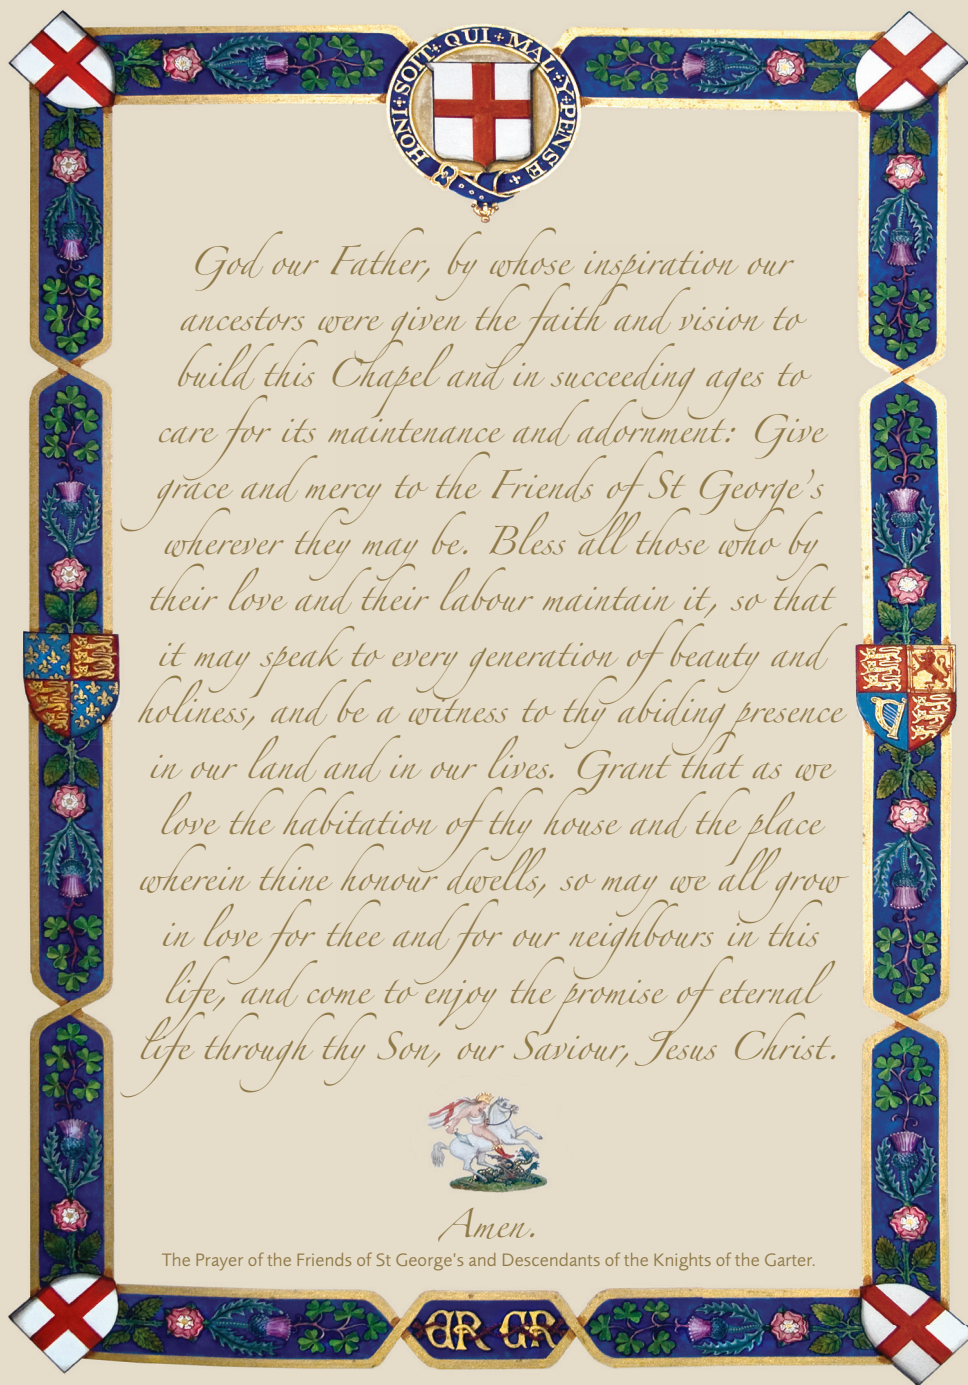 HONI SOIT QUI MAL Y PENSE
God our Father, by whose inspiration our
ancestors were given the faith and vision to
build this Chapel and in succeeding ages to
care for its maintenance and adornment: Give
grace and mercy to the Friends of St George's
wherever they may be. Bless all those who by
their love and their labour maintain it, so that
it may speak to every generation of beauty and
holiness, and be a witness to thy abiding presence
in our land and in our lives. Grant that as we
love the habitation of thy house and the place
wherein thine honour dwells, so may we all grow
in love for thee and for our neighbours in this
life, and come to enjoy the promise of eternal
life through thy Son, our Saviour, Jesus Christ.
Amen.
The Prayer of the Friends of St George's and Descendants of the Knights of the Garter.